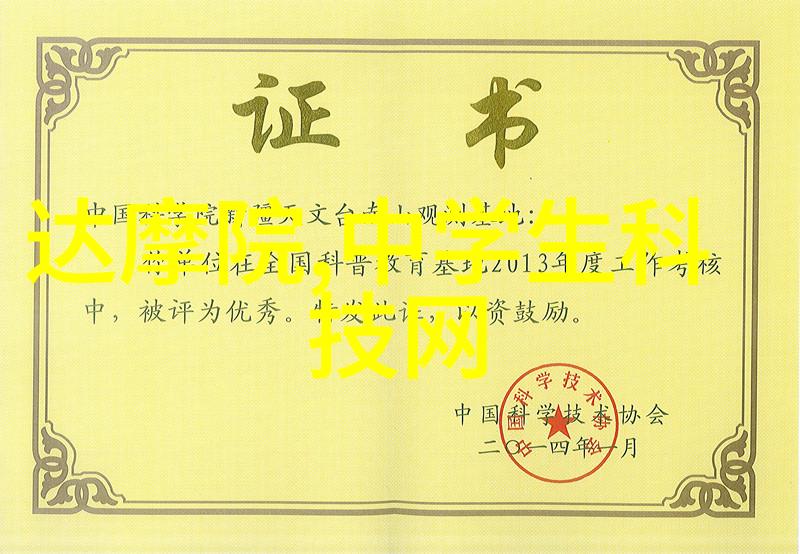 证书
中国科学院新疆天文台南山观测基地:
你单位在全国科普教育基地2013年度工作考核
中，被评为优秀。特发此证，以资鼓励。
达摩院,中学生科
技网
中国科学技术协会
二〇一四年一月
中国科学技术协会